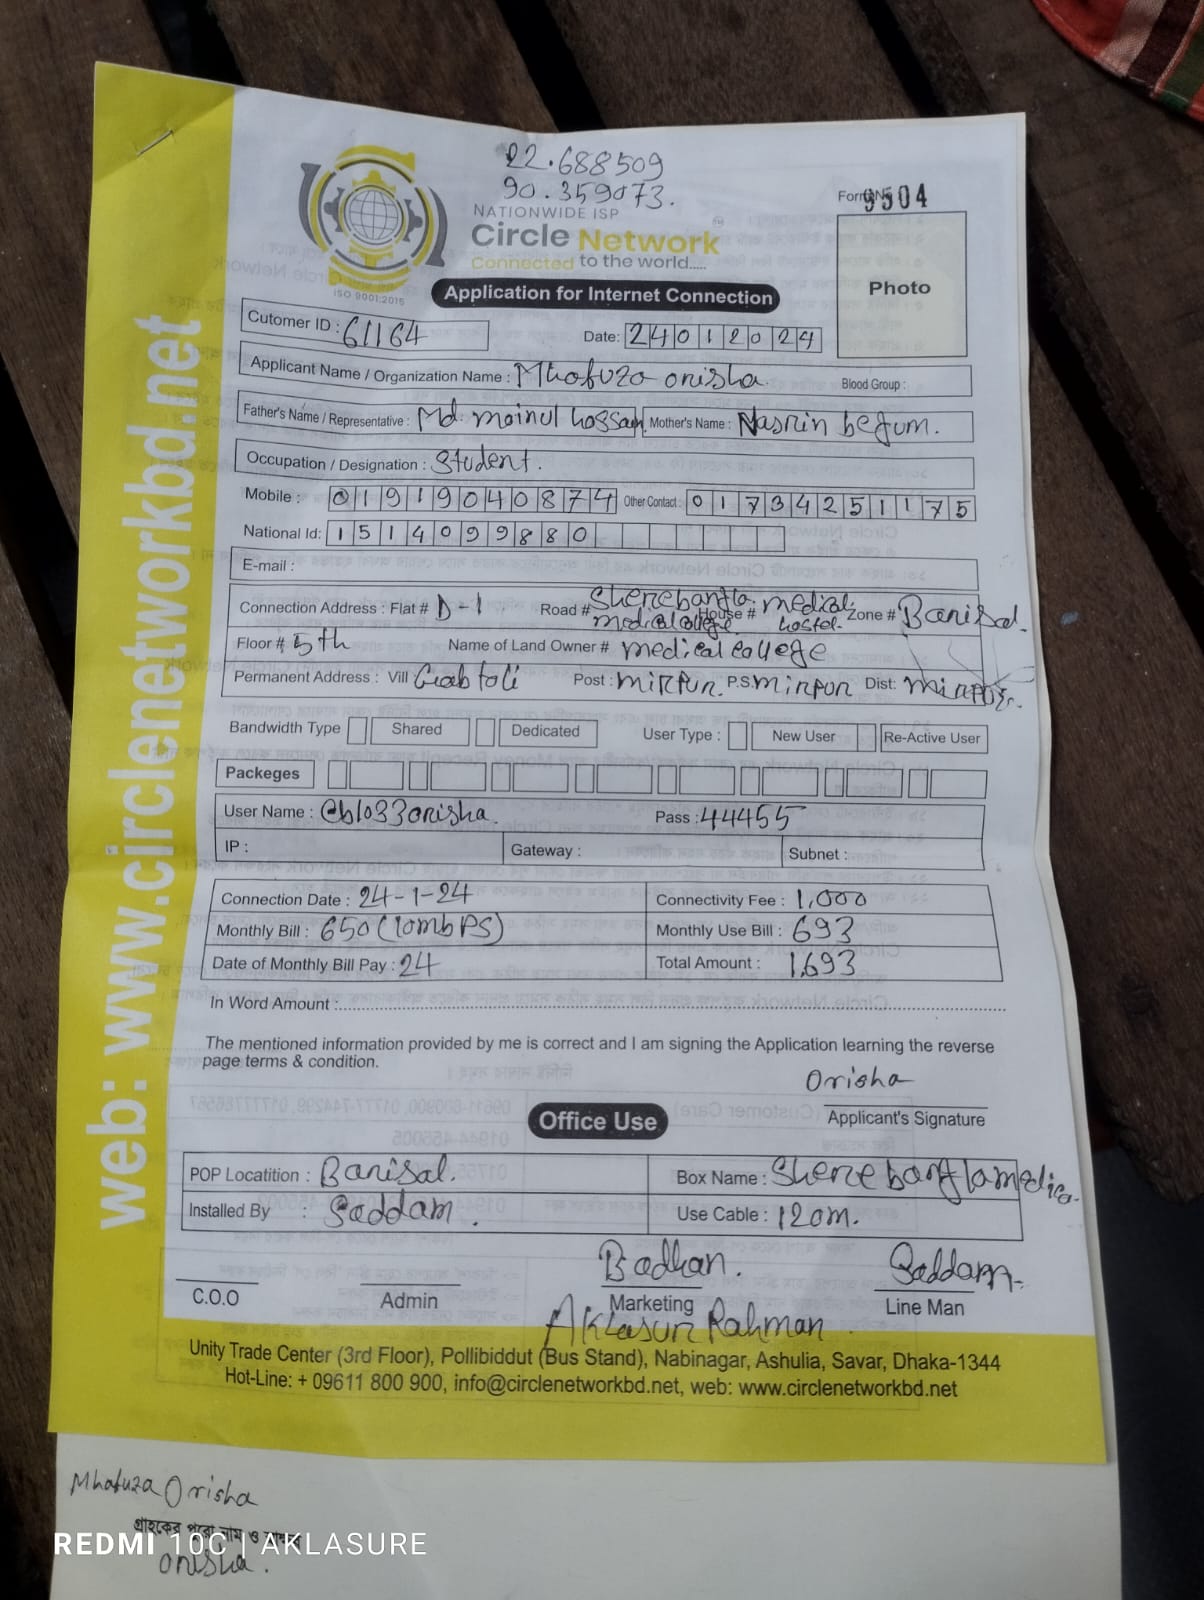 22.688509
90.359073.
Form No 9504
NATIONWIDE ISP
Circle Network
Connected to the world.....
ISO 9001:2015
Application for Internet Connection
Photo
Cutomer ID : 61164
Date: 24012024
Applicant Name / Organization Name : Mhafuza orisha.
Blood Group :
Father's Name / Representative : Md. mainul hossain Mother's Name : Nasrin begum.
Occupation / Designation : Student.
Mobile : 01919040874 Other Contact : 01734251175
National Id: 1514099880
E-mail :
Connection Address : Flat # D-1 Road # Sherebangla medical House # medical college hostel. Zone # Barisal.
Floor # 5th Name of Land Owner # medical college
Permanent Address : Vill Gabtoli Post : mirpur. P.S mirpur Dist: mirpur.
Bandwidth Type Shared Dedicated User Type : New User Re-Active User
Packeges
User Name : @bl033orisha. Pass : 44455
IP : Gateway : Subnet :
Connection Date : 24-1-24 Connectivity Fee : 1,000
Monthly Bill : 650 (10mbPS) Monthly Use Bill : 693
Date of Monthly Bill Pay : 24 Total Amount : 1,693
In Word Amount :
The mentioned information provided by me is correct and I am signing the Application learning the reverse
page terms & condition.
Orisha
Applicant's Signature
Office Use
POP Locatition : Barisal. Box Name : Sherebanglamedica.
Installed By : Saddam. Use Cable : 120m.
Badhan. Saddam.
C.O.O Admin Marketing Line Man
Aklasur Rahman
Unity Trade Center (3rd Floor), Pollibiddut (Bus Stand), Nabinagar, Ashulia, Savar, Dhaka-1344
Hot-Line: + 09611 800 900, info@circlenetworkbd.net, web: www.circlenetworkbd.net
web: www.circlenetworkbd.net
Mhafuza Orisha
গ্রাহকের পুরো নাম ও
orisha.
REDMI 10C | AKLASURE